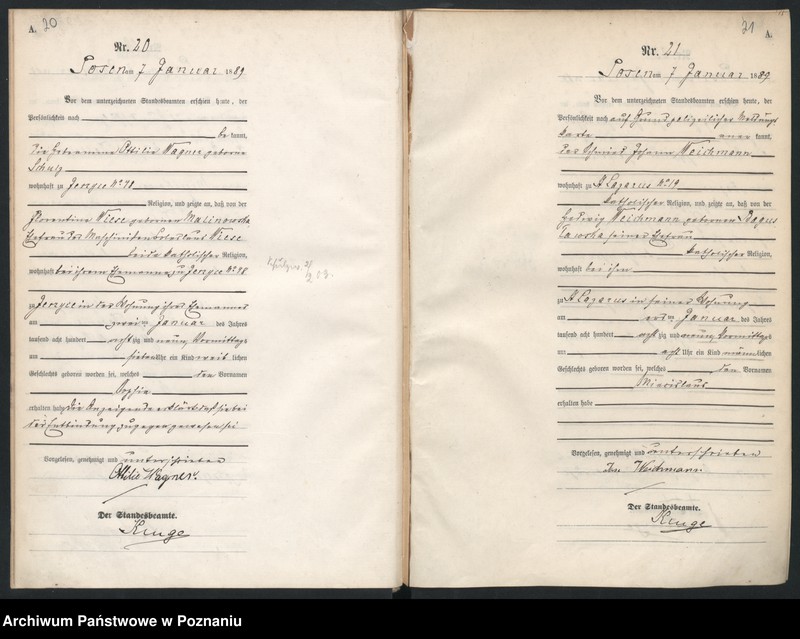 A. 20
Nr. 20
Posen am 7 Januar 1889
Vor dem unterzeichneten Standesbeamten erschien heute, der
Persönlichkeit nach
be kannt,
die Hebeamme Ottilie Wagner geborne
Schulz
wohnhaft zu Jerzyce No
Religion, und zeigte an, daß von der
Florentina Wiese geborner Malinowska
Ehefrau des Wiese
beide katholischer Religion,
wohnhaft bei ihrem Ehemanne zu Jerzyce No
zu Jerzyce in der Wohnung ihres Ehemannes
am zwei ten Januar des Jahres
tausend acht hundert acht zig und neun, Vormittags
um sieben Uhr ein Kind weib lichen
Geschlechts geboren worden sei, welches den Vornamen
Sophie
erhalten habe. Die Anzeigende erklärt daß sie bei
der Entbindung zugegen gewesen sei
Vorgelesen, genehmigt und unterschrieben
Ottilie Wagner.
Der Standesbeamte.
Kruge
21 A.
Nr. 21
Posen am 7 Januar 1889
Vor dem unterzeichneten Standesbeamten erschien heute, der
Persönlichkeit nach auf Grund polizeilicher Meldungs
karte aner kannt,
der Schmied Johann Weichmann
wohnhaft zu St Lazarus No 19
katholischer Religion, und zeigte an, daß von der
Hedwig Weichmann geborner
seiner Ehefrau
katholischer Religion,
wohnhaft bei ihm
zu St Lazarus in seiner Wohnung
am ersten Januar des Jahres
tausend acht hundert acht zig und neun, Vormittags
um acht Uhr ein Kind männ lichen
Geschlechts geboren worden sei, welches den Vornamen
erhalten habe
Vorgelesen, genehmigt und unterschrieben
Weichmann
Der Standesbeamte.
Kruge
Archiwum Państwowe w Poznaniu